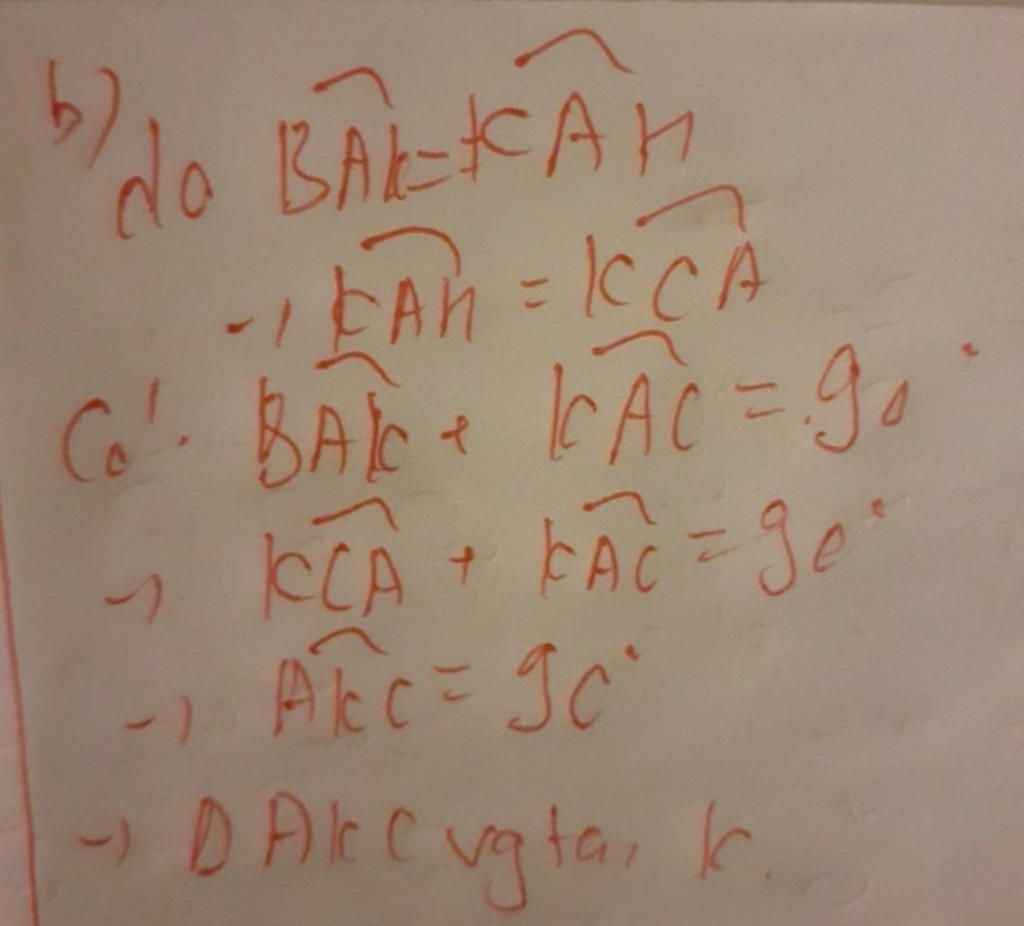 b) do BAK = KAH
→ KAH = KCA
Có: BAK + KAC = 90°
→ KCA + KAC = 90°
→ AKC = 90°
→ Δ AKC vg tại K.